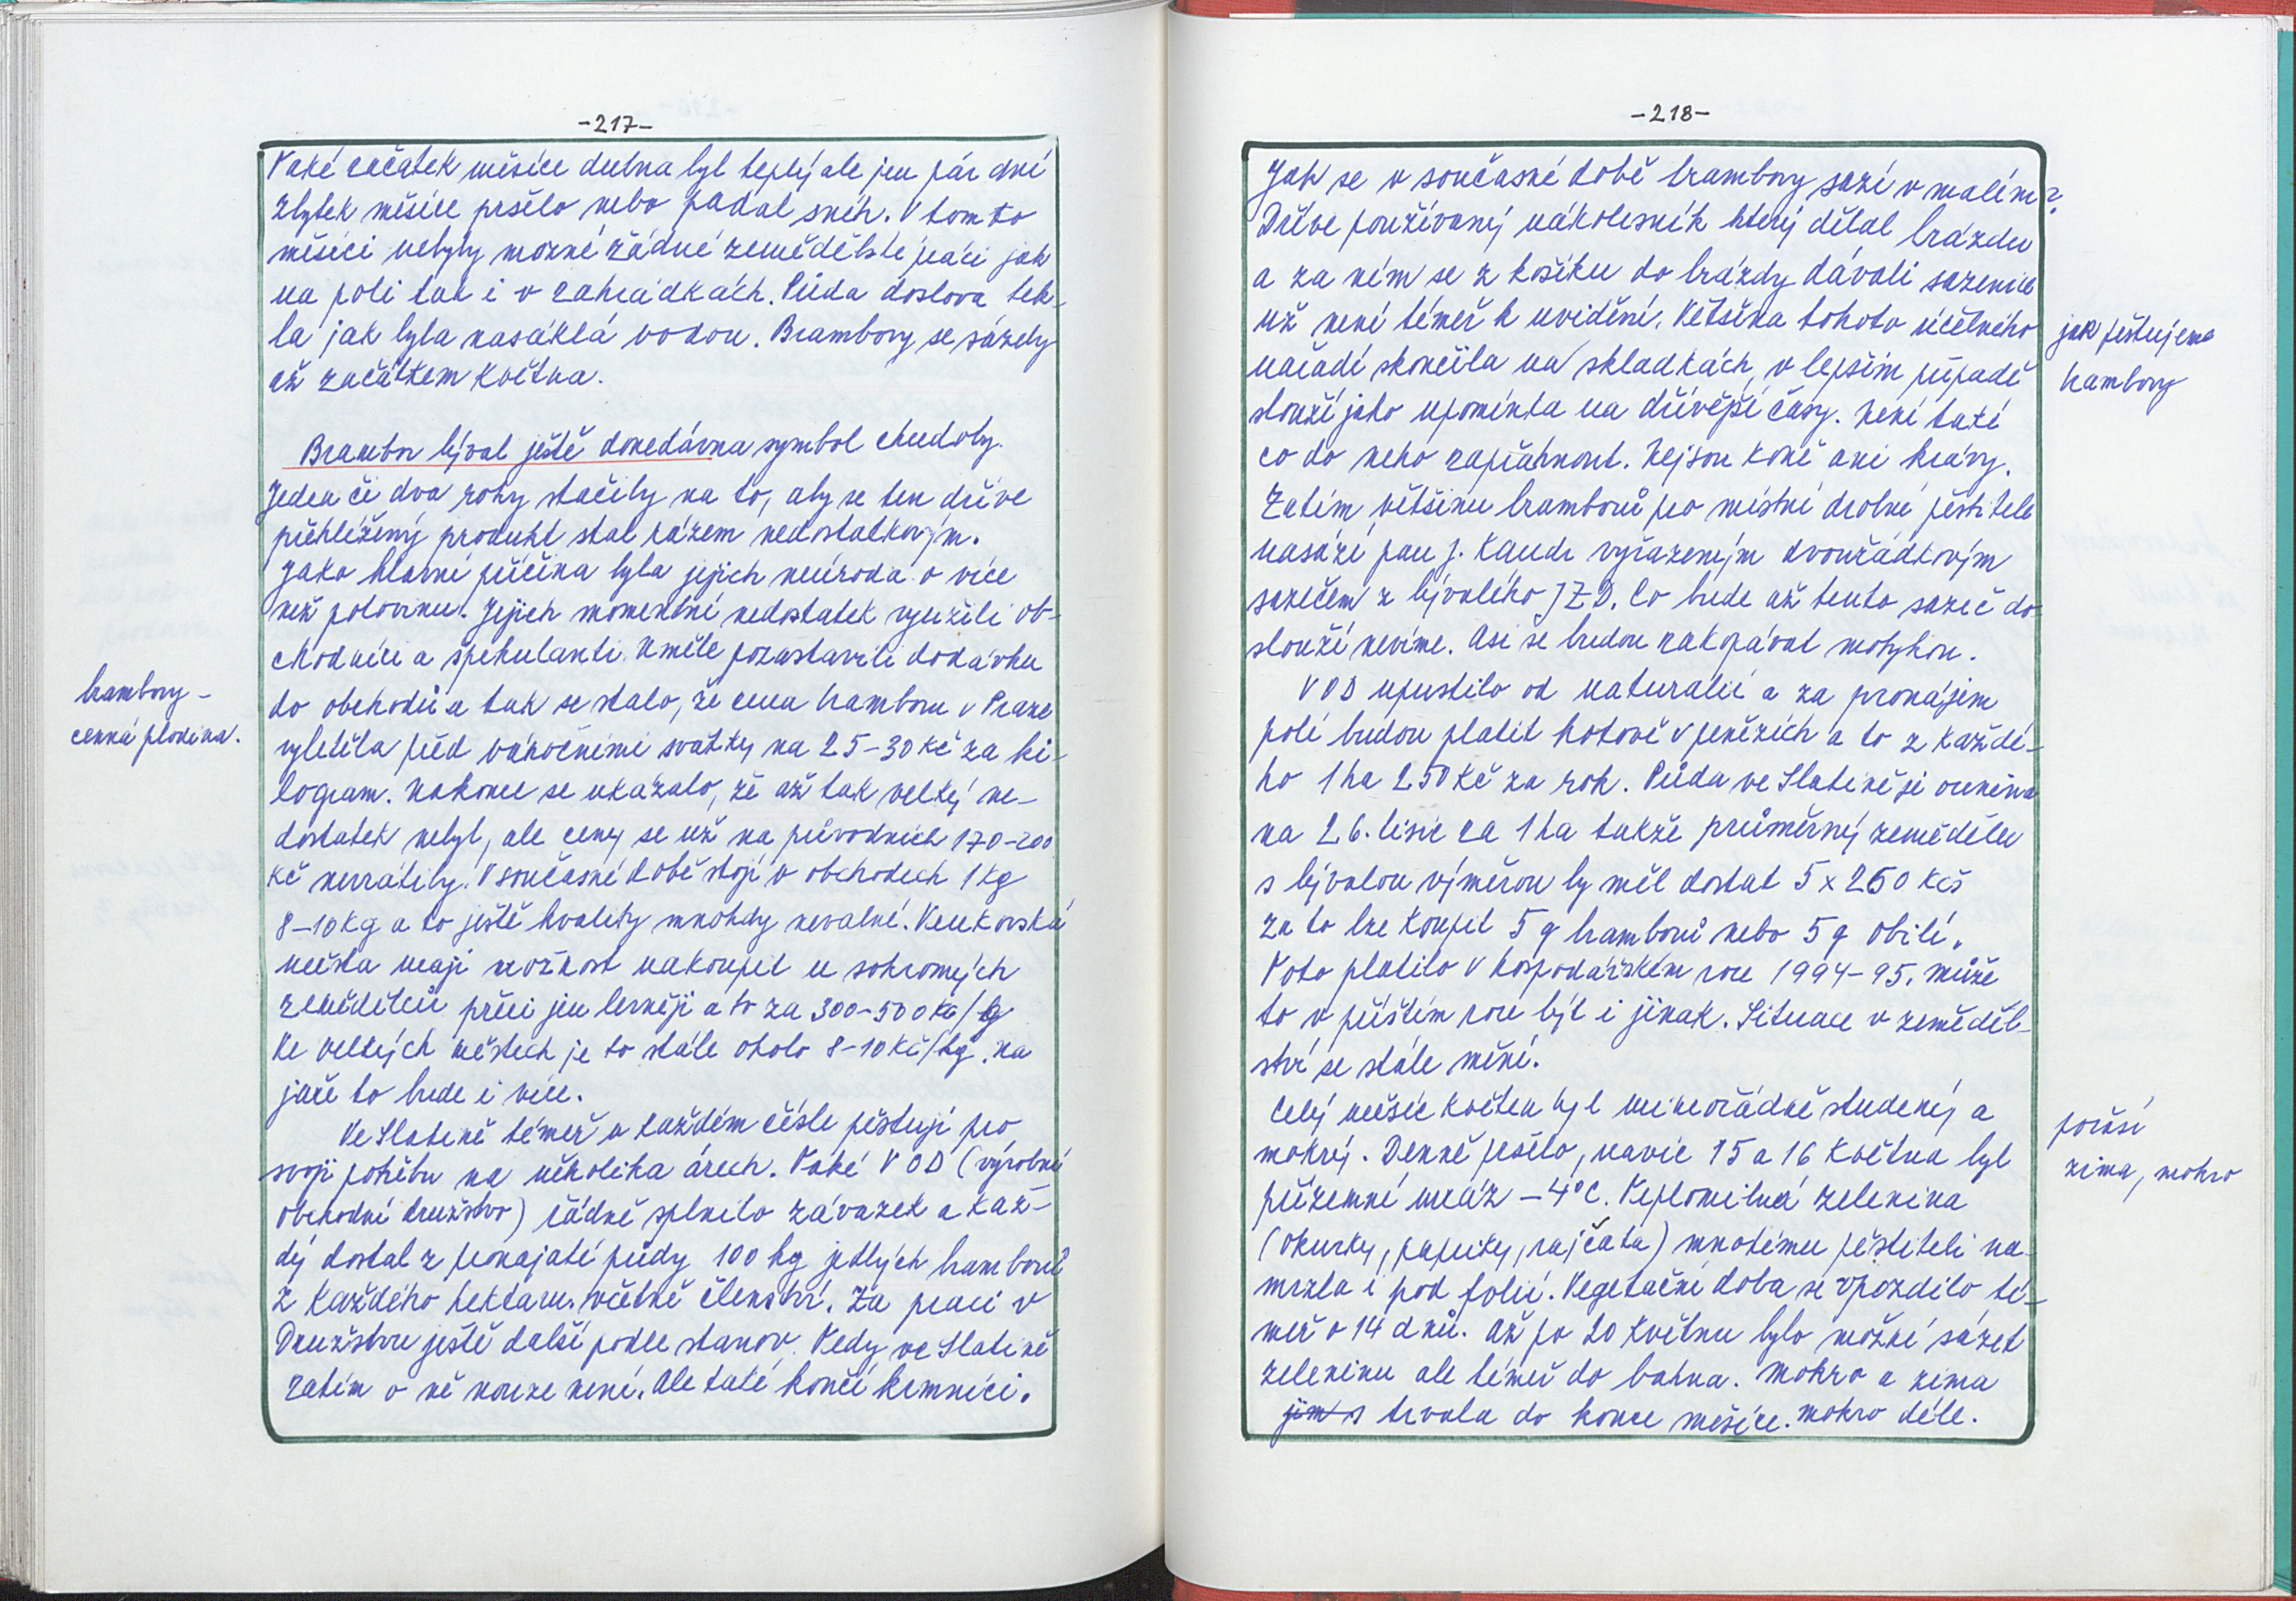 -217-
Také začátek měsíce dubna byl teplý ale jen pár dní
zbytek měsíce pršelo nebo padal sníh. V tomto
měsíci nebyly možné žádné zemědělské práci jak
na poli tak i v zahrádkách. Půda doslova tek-
la jak byla nasáklá vodou. Brambory se sázely
až začátkem května.
Brambor býval ještě donedávna symbol chudoby.
Jeden či dva rohy stačily na to, aby se ten dříve
přehlížený produkt stal rázem nedostatkovým.
Jako hlavní příčina byla jejich neúroda o více
než polovinu. Jejich momentní nedostatek využili ob-
chodníci a špekulanti. Uměle pozastavili dodávku
do obchodů a tak se stalo, že cena bramboru v Praze
vyletěla před vánočními svátky na 25-30 Kč za ki-
logram. Nakonec se ukázalo, že až tak velký ne-
dostatek nebyl, ale ceny se už na původních 170-200
Kč nevrátily. V současné době stojí v obchodech 1 kg
8-10 kg a to ještě kvality mnohdy nevalné. Venkovská
města mají možnost nakoupit u sohromých
zemědělců přeci jen levněji a to za 300-500 Kč/q
Ve velkých městech je to stále okolo 8-10 Kč/kg. na
jaře to bude i více.
Ve Slatině téměř v každém čísle pěstují pro
svoji potřebu na několika árech. Také VOD (výrobní
obchodní družstvo) řádně splnilo závazek a kaž-
dý dostal z pronajaté půdy 100 kg jedlých bramborů
z každého hektaru. včetně členství. Za práci v
Družstvu ještě další podle stanov. Tedy ve Slatině
zatím o ně nouze není. Ale také končí krmníci.
brambory -
cenná plodina.
-218-
Jak se v současné době brambory sází v malém?
Dříve používaný nákolesník který dělal brázdu
a za ním se z košíku do brázdy dávali sazenice
už není téměř k uvidění. Většina tohoto účelného
nářadí skončila na skladkách, v lepším případě
slouží jako upomínka na dřívější časy. Není také
co do něho zapřáhnout. Nejsou koně ani krávy.
Zatím většinu bramborů pro místní drobné pěstitele
nasází pan J. Kandr vyřazeným dvouřádkovým
sazečem z bývalého JZD. Co bude až tento sazeč do-
slouží nevíme. Asi se budou zakopávat motykou.
VOD upustilo od naturalií a za pronájem
polí budou platit hotově v penězích a to z každé-
ho 1 ha 250 Kč za rok. Půda ve Slatině je oceněna
na 26. tisíc za 1 ha takže průměrný zemědělec
s bývalou výměrou by měl dostat 5 x 250 Kčs
Za to lze koupit 5 q bramborů nebo 5 q obilí.
Toto platilo v hospodářském roce 1994-95. může
to v příštím roce být i jinak. Situace v zeměděl-
ství se stále mění.
Celý měsíc květen byl mimořádně studený a
mokrý. Denně pršelo, navíc 15 a 16 května byl
přízemní mráz -4°C. Teplomilná zelenina
(okurky, papriky, rajčata) mnohému pěstiteli na-
mrzla i pod folií. Vegetační doba se opozdilo té-
měř o 14 dnů. až po 20 květnu bylo možné sázet
zeleninu ale téměř do bahna. Mokro a zima
trvala do konce měsíce. mokro déle.
jak pěstujeme
brambory
počasí
zima, mokro